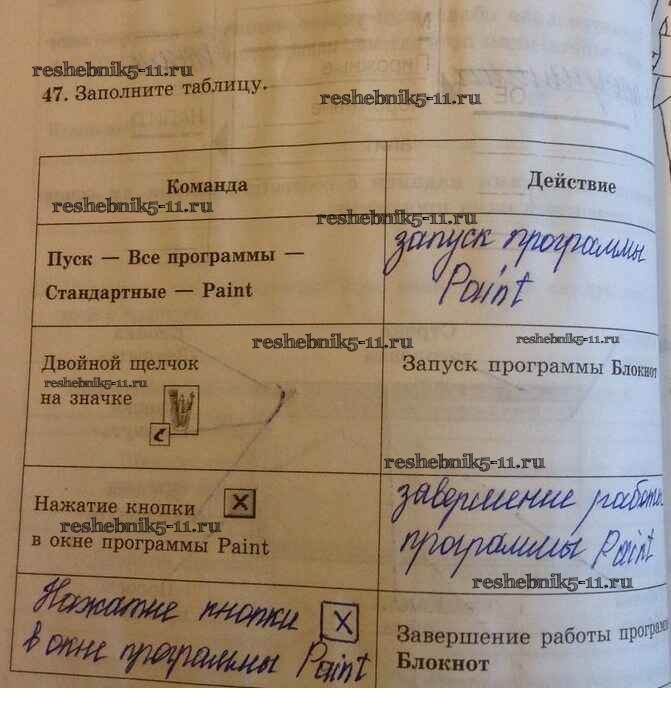 reshebnik5-11.ru
47. Заполните таблицу.
reshebnik5-11.ru
Команда
Действие
reshebnik5-11.ru
reshebnik5-11.ru
Пуск — Все программы —
Стандартные — Paint
запуск программы
Paint
reshebnik5-11.ru
reshebnik5-11.ru
Двойной щелчок
reshebnik5-11.ru
на значке
Запуск программы Блокнот
reshebnik5-11.ru
Нажатие кнопки X
reshebnik5-11.ru
в окне программы Paint
завершение работы
программы Paint
reshebnik5-11.ru
Нажатие кнопки X
в окне программы Paint
Завершение работы програм
Блокнот